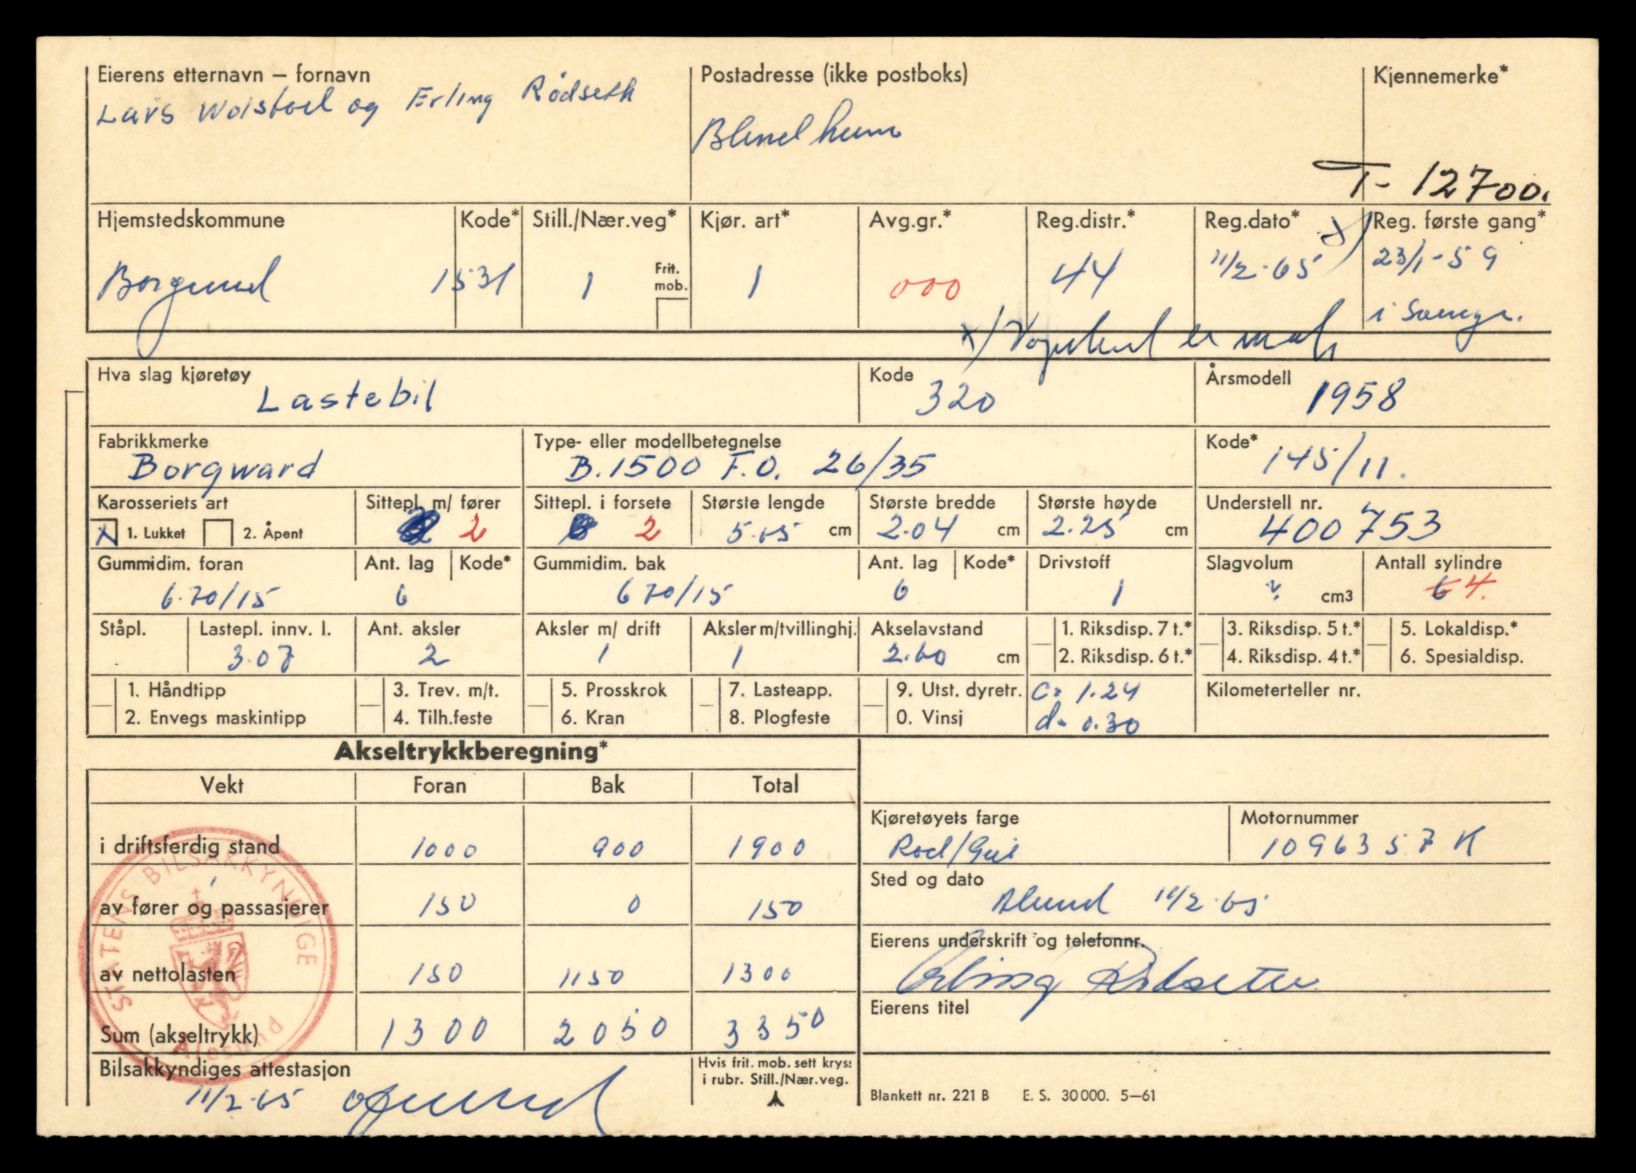 Eierens etternavn – fornavn Postadresse (ikke postboks) Kjennemerke*
Lars og Erling Rødseth
Blindheim
T- 12700.
Hjemstedskommune Kode* Still./Nær.veg* Kjør. art* Avg.gr.* Reg.distr.* Reg.dato* x) Reg. første gang*
Borgund 1531 1 Frit. mob. 1 000 44 11/2-65 23/1-59
i Sveigr.
x) Vognkort er
Hva slag kjøretøy Lastebil Kode 320 Årsmodell 1958
Fabrikkmerke Type- eller modellbetegnelse Kode*
Borgward B.1500 F.O. 26/35 145/11.
Karosseriets art Sittepl. m/ fører Sittepl. i forsete Største lengde Største bredde Største høyde Understell nr.
X 1. Lukket 2. Åpent 2 2 5.05 cm 2.04 cm 2.25 cm 400753
Gummidim. foran Ant. lag Kode* Gummidim. bak Ant. lag Kode* Drivstoff Slagvolum Antall sylindre
6.70/15 6 6 70/15 6 1 ? cm3 6 4.
Ståpl. Lastepl. innv. l. Ant. aksler Aksler m/ drift Aksler m/tvillinghj. Akselavstand 1. Riksdisp. 7 t.* 3. Riksdisp. 5 t.* 5. Lokaldisp.*
3.07 2 1 1 2.60 cm 2. Riksdisp. 6 t.* 4. Riksdisp. 4 t.* 6. Spesialdisp.
1. Håndtipp 3. Trev. m/t. 5. Prosskrok 7. Lasteapp. 9. Utst. dyretr. C= 1.24 Kilometerteller nr.
2. Envegs maskintipp 4. Tilh.feste 6. Kran 8. Plogfeste 0. Vinsj d= 0.30
Akseltrykkberegning*
Vekt Foran Bak Total
Kjøretøyets farge Motornummer
i driftsferdig stand 1000 900 1900 Rød/Grå 1096357 K
Sted og dato
av fører og passasjerer 150 0 150 Ålesund 11/2-65
Eierens underskrift og telefonnr.
av nettolasten 150 1150 1300 Erling Rødseth
Eierens titel
Sum (akseltrykk) 1300 2050 3350
STATENS BILSAKKYNDIGE
Ålesund
Bilsakkyndiges attestasjon Hvis frit. mob. sett kryss
i rubr. Still./Nær.veg.
11/2-65
Blankett nr. 221 B E. S. 30000. 5–61